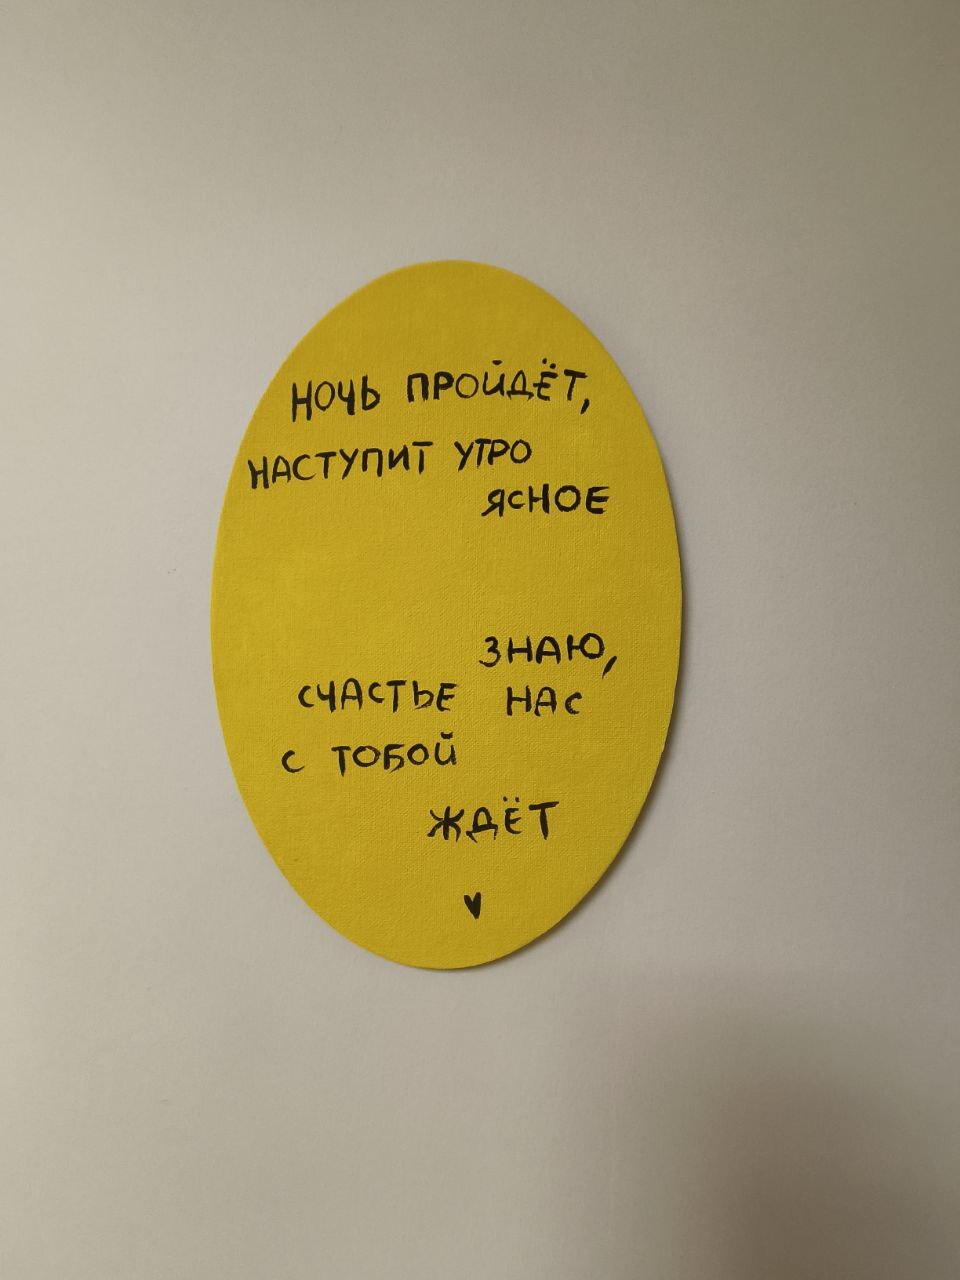 НОЧЬ ПРОЙДЁТ,
НАСТУПИТ УТРО
ЯСНОЕ
ЗНАЮ,
СЧАСТЬЕ НАС
С ТОБОЙ
ЖДЁТ